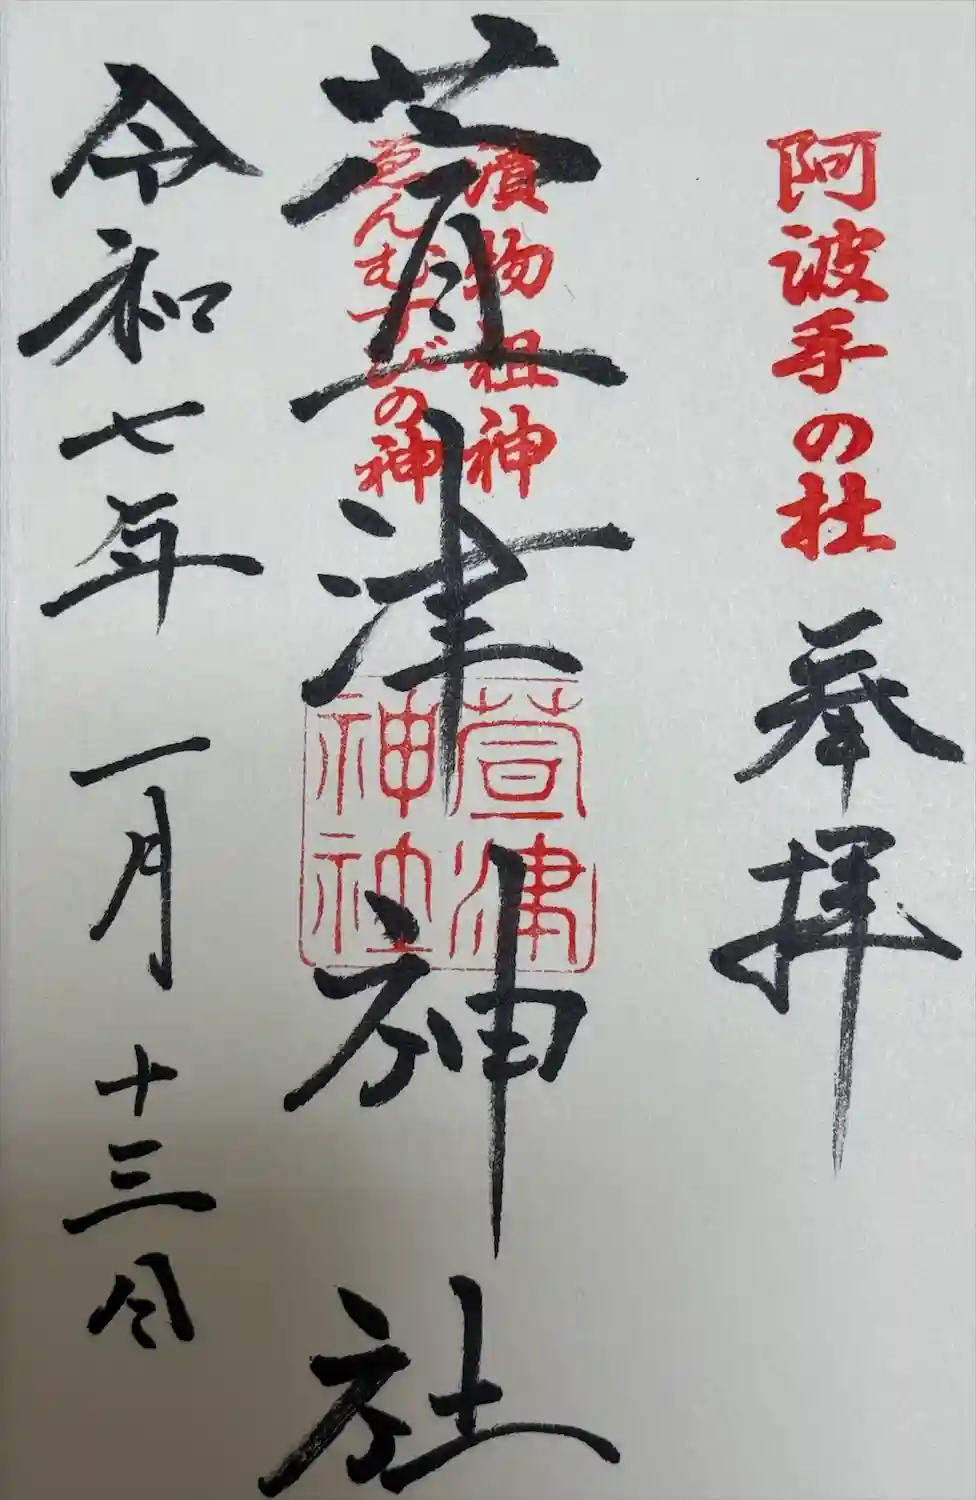 阿波手の社 奉拝
漬物祖神
ゑんむすびの神
萱津神社
萱津神社
令和七年一月十三日